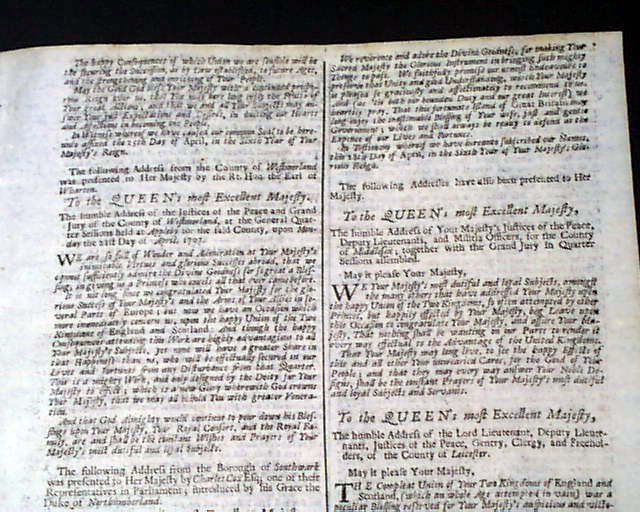 The happy Consequences of which Union we are sensible will be
the securing the Succession, as by Law establish'd, to future Ages,
and the strengthening and enriching of Your People.
May the Good God bless Your Majesty with a
Your Reign over us,
may
swer Your just Expectations and
in uniting our Hearts
and Affections, and becoming one People.
In Witness whereof we have caused our common Seal to be here-
unto affixed the 25th Day of April, in the Sixth Year of Your
Majesty's Reign.
The following Address from the County of Westmorland
was presented to Her Majesty by the Rt. Hon. the Earl of
Wharton.
To the QUEEN's most Excellent Majesty.
The humble Address of the Justices of the Peace and Grand
Jury of the County of Westmorland, at the General Quar-
ter Sessions held at Appleby for the said County, upon Mon-
day the 21st Day of April, 1707.
WE are so full of Wonder and Admiration at Your Majesty's
inimitable Virtues and glorious Successes abroad, that we
cannot sufficiently admire the Divine Goodness for so great a Bles-
sing, in giving us a Princess who excels all that ever came before.
It is not long since we congratulated Your Majesty for the glo-
rious Success of Your Majesty's and the Arms of Your Allies in se-
veral Parts of Europe; but now we have an Occasion which
more immediately concerns us, upon the happy Union of the Two
Kingdoms of England and Scotland. And though the happy
Consequences attending this Work are highly advantagious to all
Your Majesty's Subjects, yet none will have a greater Share in
that Happiness than we, who will be effectually secured in our
Lives and Fortunes from any Disturbance from that Quarter.
This is a mighty Work, and only designed by the Deity for Your
Majesty to effect, which is a new Glory wherewith God crowns
Your Majesty, that we may all behold You with greater Venera-
tion.
And that God Almighty would continue to pour down his Bles-
sings upon Your Majesty, Your Royal Consort, and the Royal Fa-
mily, are and shall be the constant Wishes and Prayers of Your
Majesty's most dutiful and loyal Subjects.
The following Address from the Borough of Southwark
was presented to Her Majesty by Charles Cox Esq; one of their
Representatives in Parliament; introduced by his Grace the
Duke of Northumberland.
We reverence and adore the Divine Goodness, for making Your
Sacred Majesty the Glorious Instrument in bringing such mighty
Things to pass. We faithfully promise our utmost Endeavours to
preserve that Unity and good Understanding, which Your Majesty
is pleased so graciously and affectionately to recommend to us;
and (as 'tis both our bounden Duty and our great Interest) we
heartily pray, That this fortunate Island of Great Britain may
long enjoy the inestimable Blessing of Your wise, just and gentle
Government; which we shall always be ready to defend at the
Expence of our Lives and Fortunes.
In Testimony whereof we have hereunto subscribed our Names,
this 18th Day of April, in the Sixth Year of Your Majesty's Glo-
rious Reign.
The following Addresses have also been presented to Her
Majesty.
To the QUEEN's most Excellent Majesty,
The humble Address of Your Majesty's Justices of the Peace,
Deputy Lieutenants, and Militia Officers, for the County
of Middlesex; together with the Grand Jury in Quarter
Sessions assembled.
May it please Your Majesty,
WE Your Majesty's most dutiful and loyal Subjects, amongst
the many others that have addressed Your Majesty upon
the happy Union of the Two Kingdoms, so often attempted by other
Princes, but happily effected by Your Majesty, beg Leave upon
this Occasion to congratulate Your Majesty, and assure Your Ma-
jesty, That nothing shall be wanting in our Power to render it
every way effectual to the Advantage of the United Kingdoms.
That Your Majesty may long live, to see the happy Effects of
this and all other Your unwearied Cares, for the Good of Your
People; and that they may every way answer Your Noble De-
signs, shall be the constant Prayers of Your Majesty's most dutiful
and loyal Subjects and Servants.
To the QUEEN's most Excellent Majesty,
The humble Address of the Lord Lieutenant, Deputy Lieute-
nants, Justices of the Peace, Gentry, Clergy, and Freehol-
ders, of the County of Leicester.
May it please Your Majesty,
THE Compleat Union of Your Two Kingdoms of England and
Scotland, (which an whole Age attempted in vain) was a
peculiar Blessing reserved for Your Majesty's auspicious and